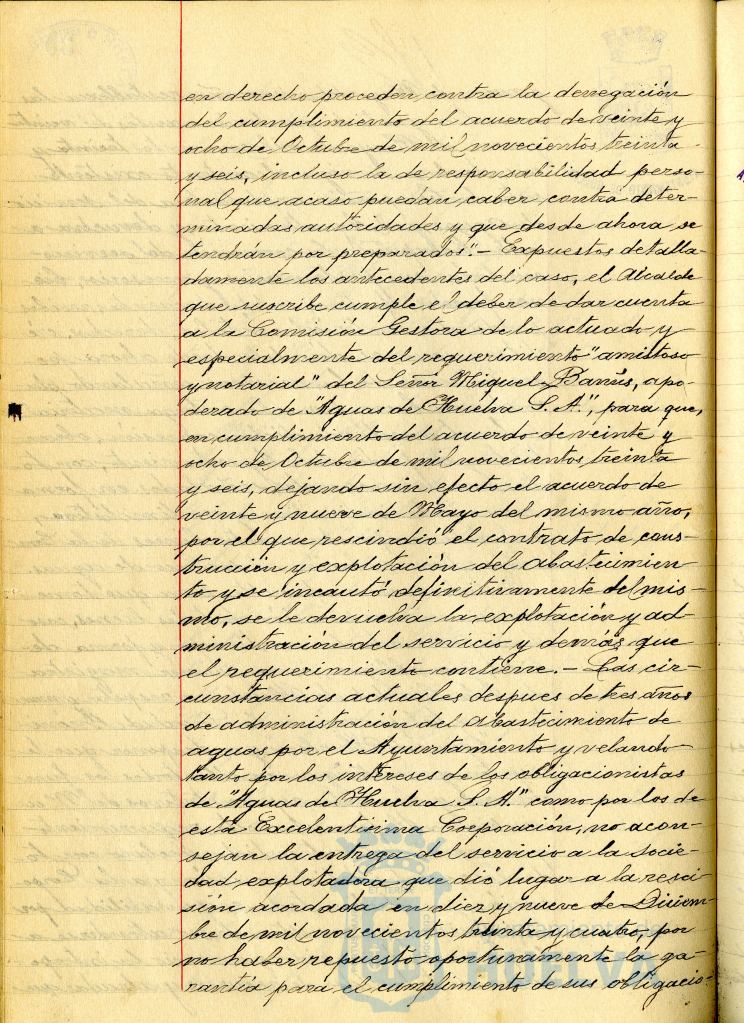 en derecho proceden contra la denegación
del cumplimiento del acuerdo de veinte y
ocho de Octubre de mil novecientos treinta
y seis, incluso la de responsabilidad perso-
nal que acaso puedan caber contra deter-
minadas autoridades y que desde ahora se
tendrán por preparados".- Expuestos detalla-
damente los antecedentes del caso, el Alcalde
que suscribe cumple el deber de dar cuenta
a la Comisión Gestora de lo actuado y
especialmente del requerimiento "amistoso
y notarial" del Señor Miguel Banús, apo-
derado de "Aguas de Huelva S. A.", para que,
en cumplimiento del acuerdo de veinte y
ocho de Octubre de mil novecientos treinta
y seis, dejando sin efecto el acuerdo de
veinte y nueve de Mayo del mismo año,
por el que rescindió el contrato de cons-
trucción y explotación del abastecimien-
to y se incautó definitivamente del mis-
mo, se le devuelva la explotación y ad-
ministración del servicio y demás que
el requerimiento contiene.- Las cir-
cunstancias actuales despues de tres años
de administración del abastecimiento de
aguas por el Ayuntamiento y velando
tanto por los intereses de los obligacionistas
de "Aguas de Huelva S. A." como por los de
esta Excelentísima Corporación, no acon-
sejan la entrega del servicio a la socie-
dad explotadora que dió lugar a la resci-
sión acordada en diez y nueve de Diciem-
bre de mil novecientos treinta y cuatro, por
no haber repuesto oportunamente la ga-
rantía para el cumplimiento de sus obligacio-
HUELVA